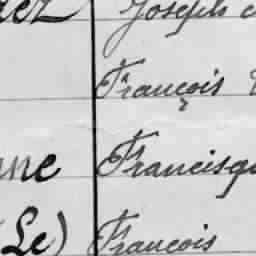 Joseph
François
Francisqu
(Le) François